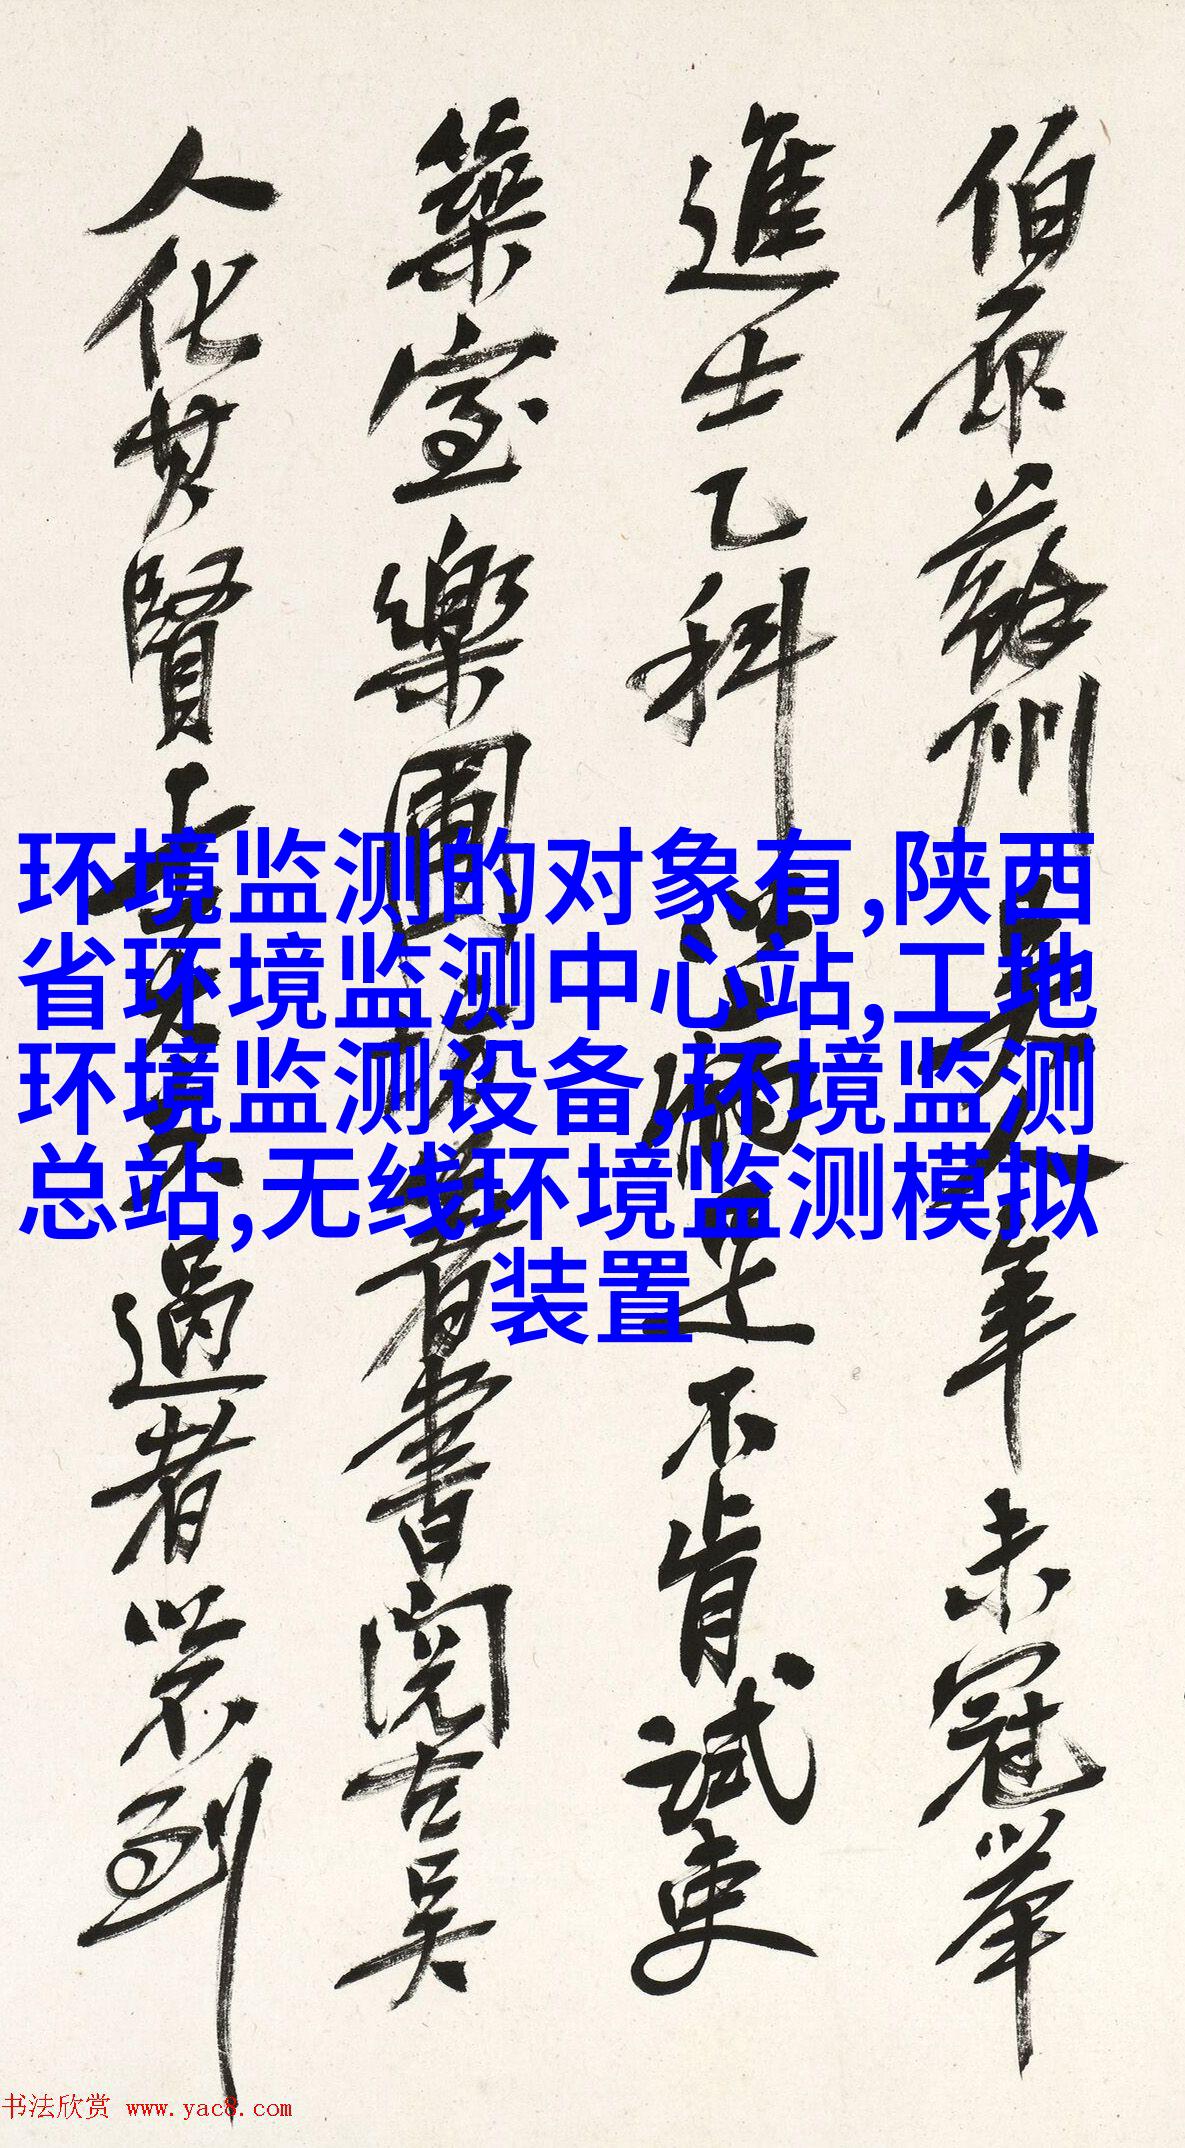 环境监测的对象有,陕西
省环境监测中心站,工地
环境监测设备,环境监测
总站,无线环境监测模拟
装置
伯原蘇州吳人年未冠舉
進士乙科病足不肯試吏
築室樂圃坊著書閱古吳
人化其賢士大夫過者以不到
书法欣赏 www.yac8.com